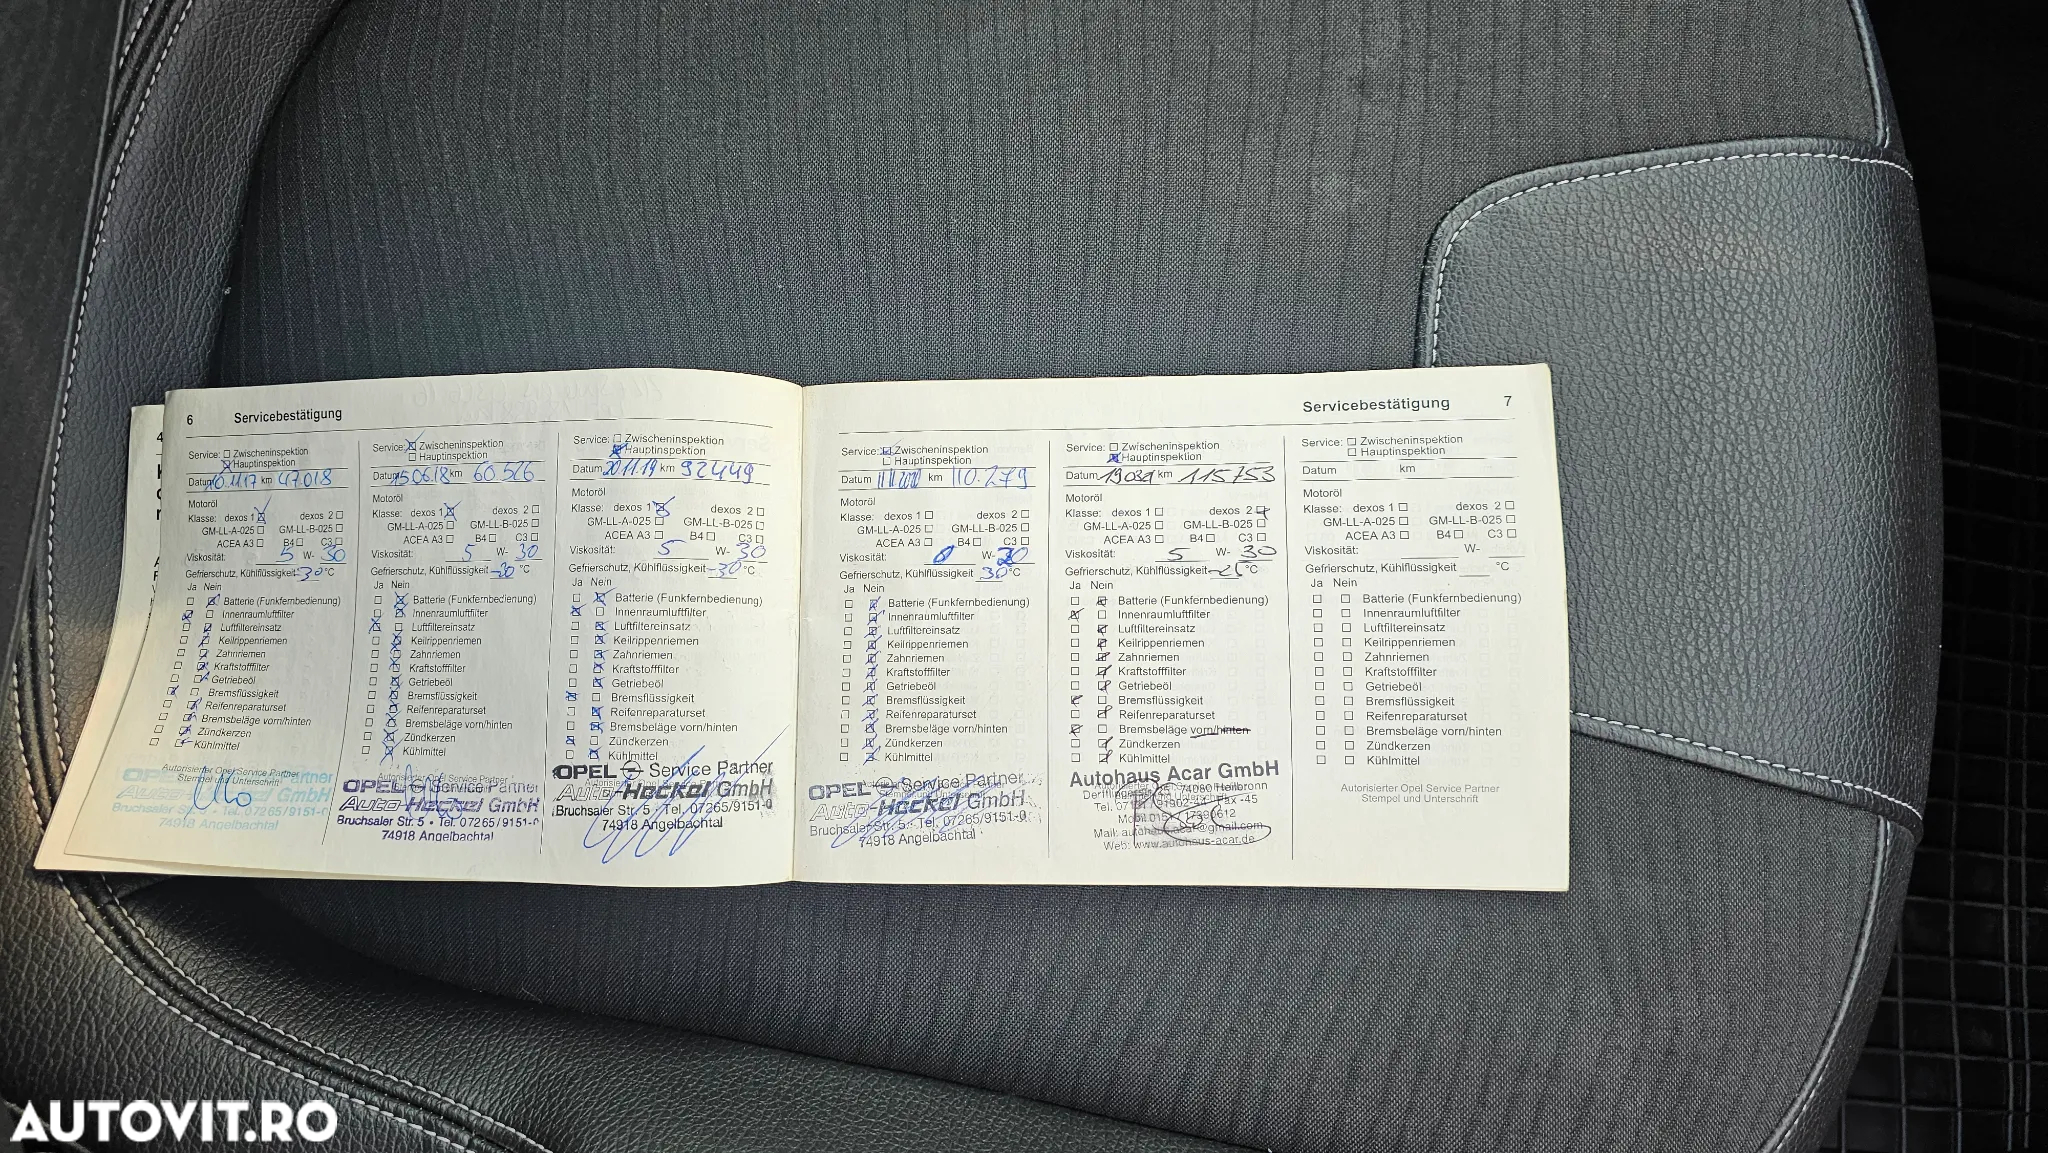 6 Servicebestätigung
Service: Zwischeninspektion
Hauptinspektion
Datum 10.11.17 km 47.018
Motoröl
Klasse: dexos 1 dexos 2
GM-LL-A-025 GM-LL-B-025
ACEA A3 B4 C3
Viskosität: 5 W- 30
Gefrierschutz, Kühlflüssigkeit -30 °C
Ja Nein
Batterie (Funkfernbedienung)
Innenraumluftfilter
Luftfiltereinsatz
Keilrippenriemen
Zahnriemen
Kraftstofffilter
Getriebeöl
Bremsflüssigkeit
Reifenreparaturset
Bremsbeläge vorn/hinten
Zündkerzen
Kühlmittel
Autorisierter Opel Service Partner
Stempel und Unterschrift
OPEL Service Partner
Auto-Hockel GmbH
Bruchsaler Str. 5
74918 Angelbachtal
Service: Zwischeninspektion
Hauptinspektion
Datum 15.06.18 km 60.526
Motoröl
Klasse: dexos 1 dexos 2
GM-LL-A-025 GM-LL-B-025
ACEA A3 B4 C3
Viskosität: 5 W- 30
Gefrierschutz, Kühlflüssigkeit -30 °C
Ja Nein
Batterie (Funkfernbedienung)
Innenraumluftfilter
Luftfiltereinsatz
Keilrippenriemen
Zahnriemen
Kraftstofffilter
Getriebeöl
Bremsflüssigkeit
Reifenreparaturset
Bremsbeläge vorn/hinten
Zündkerzen
Kühlmittel
Autorisierter Opel Service Partner
OPEL Service Partner
Auto-Hockel GmbH
Bruchsaler Str. 5 • Tel. 07265/9151-0
74918 Angelbachtal
Service: Zwischeninspektion
Hauptinspektion
Datum 20.11.19 km 92449
Motoröl
Klasse: dexos 1 dexos 2
GM-LL-A-025 GM-LL-B-025
ACEA A3 B4 C3
Viskosität: 5 W- 30
Gefrierschutz, Kühlflüssigkeit -30 °C
Ja Nein
Batterie (Funkfernbedienung)
Innenraumluftfilter
Luftfiltereinsatz
Keilrippenriemen
Zahnriemen
Kraftstofffilter
Getriebeöl
Bremsflüssigkeit
Reifenreparaturset
Bremsbeläge vorn/hinten
Zündkerzen
Kühlmittel
OPEL Service Partner
Auto-Hockel GmbH
Bruchsaler Str. 5 • Tel. 07265/9151-0
74918 Angelbachtal
Servicebestätigung 7
Service: Zwischeninspektion
Hauptinspektion
Datum km 110.279
Motoröl
Klasse: dexos 1 dexos 2
GM-LL-A-025 GM-LL-B-025
ACEA A3 B4 C3
Viskosität: 0 W-
Gefrierschutz, Kühlflüssigkeit 30 °C
Ja Nein
Batterie (Funkfernbedienung)
Innenraumluftfilter
Luftfiltereinsatz
Keilrippenriemen
Zahnriemen
Kraftstofffilter
Getriebeöl
Bremsflüssigkeit
Reifenreparaturset
Bremsbeläge vorn/hinten
Zündkerzen
Kühlmittel
OPEL Service Partner
Auto-Hockel GmbH
Bruchsaler Str. 5 • Tel. 07265/9151-0
74918 Angelbachtal
Service: Zwischeninspektion
Hauptinspektion
Datum km 115753
Motoröl
Klasse: dexos 1 dexos 2
GM-LL-A-025 GM-LL-B-025
ACEA A3 B4 C3
Viskosität: 5 W- 30
Gefrierschutz, Kühlflüssigkeit °C
Ja Nein
Batterie (Funkfernbedienung)
Innenraumluftfilter
Luftfiltereinsatz
Keilrippenriemen
Zahnriemen
Kraftstofffilter
Getriebeöl
Bremsflüssigkeit
Reifenreparaturset
Bremsbeläge vorn/hinten
Zündkerzen
Kühlmittel
Autohaus Acar GmbH
74080 Heilbronn
Mail: autohaus-acar@gmail.com
Web: www.autohaus-acar.de
Service: Zwischeninspektion
Hauptinspektion
Datum km
Motoröl
Klasse: dexos 1 dexos 2
GM-LL-A-025 GM-LL-B-025
ACEA A3 B4 C3
Viskosität: W-
Gefrierschutz, Kühlflüssigkeit °C
Ja Nein
Batterie (Funkfernbedienung)
Innenraumluftfilter
Luftfiltereinsatz
Keilrippenriemen
Zahnriemen
Kraftstofffilter
Getriebeöl
Bremsflüssigkeit
Reifenreparaturset
Bremsbeläge vorn/hinten
Zündkerzen
Kühlmittel
Autorisierter Opel Service Partner
Stempel und Unterschrift
AUTOVIT.RO